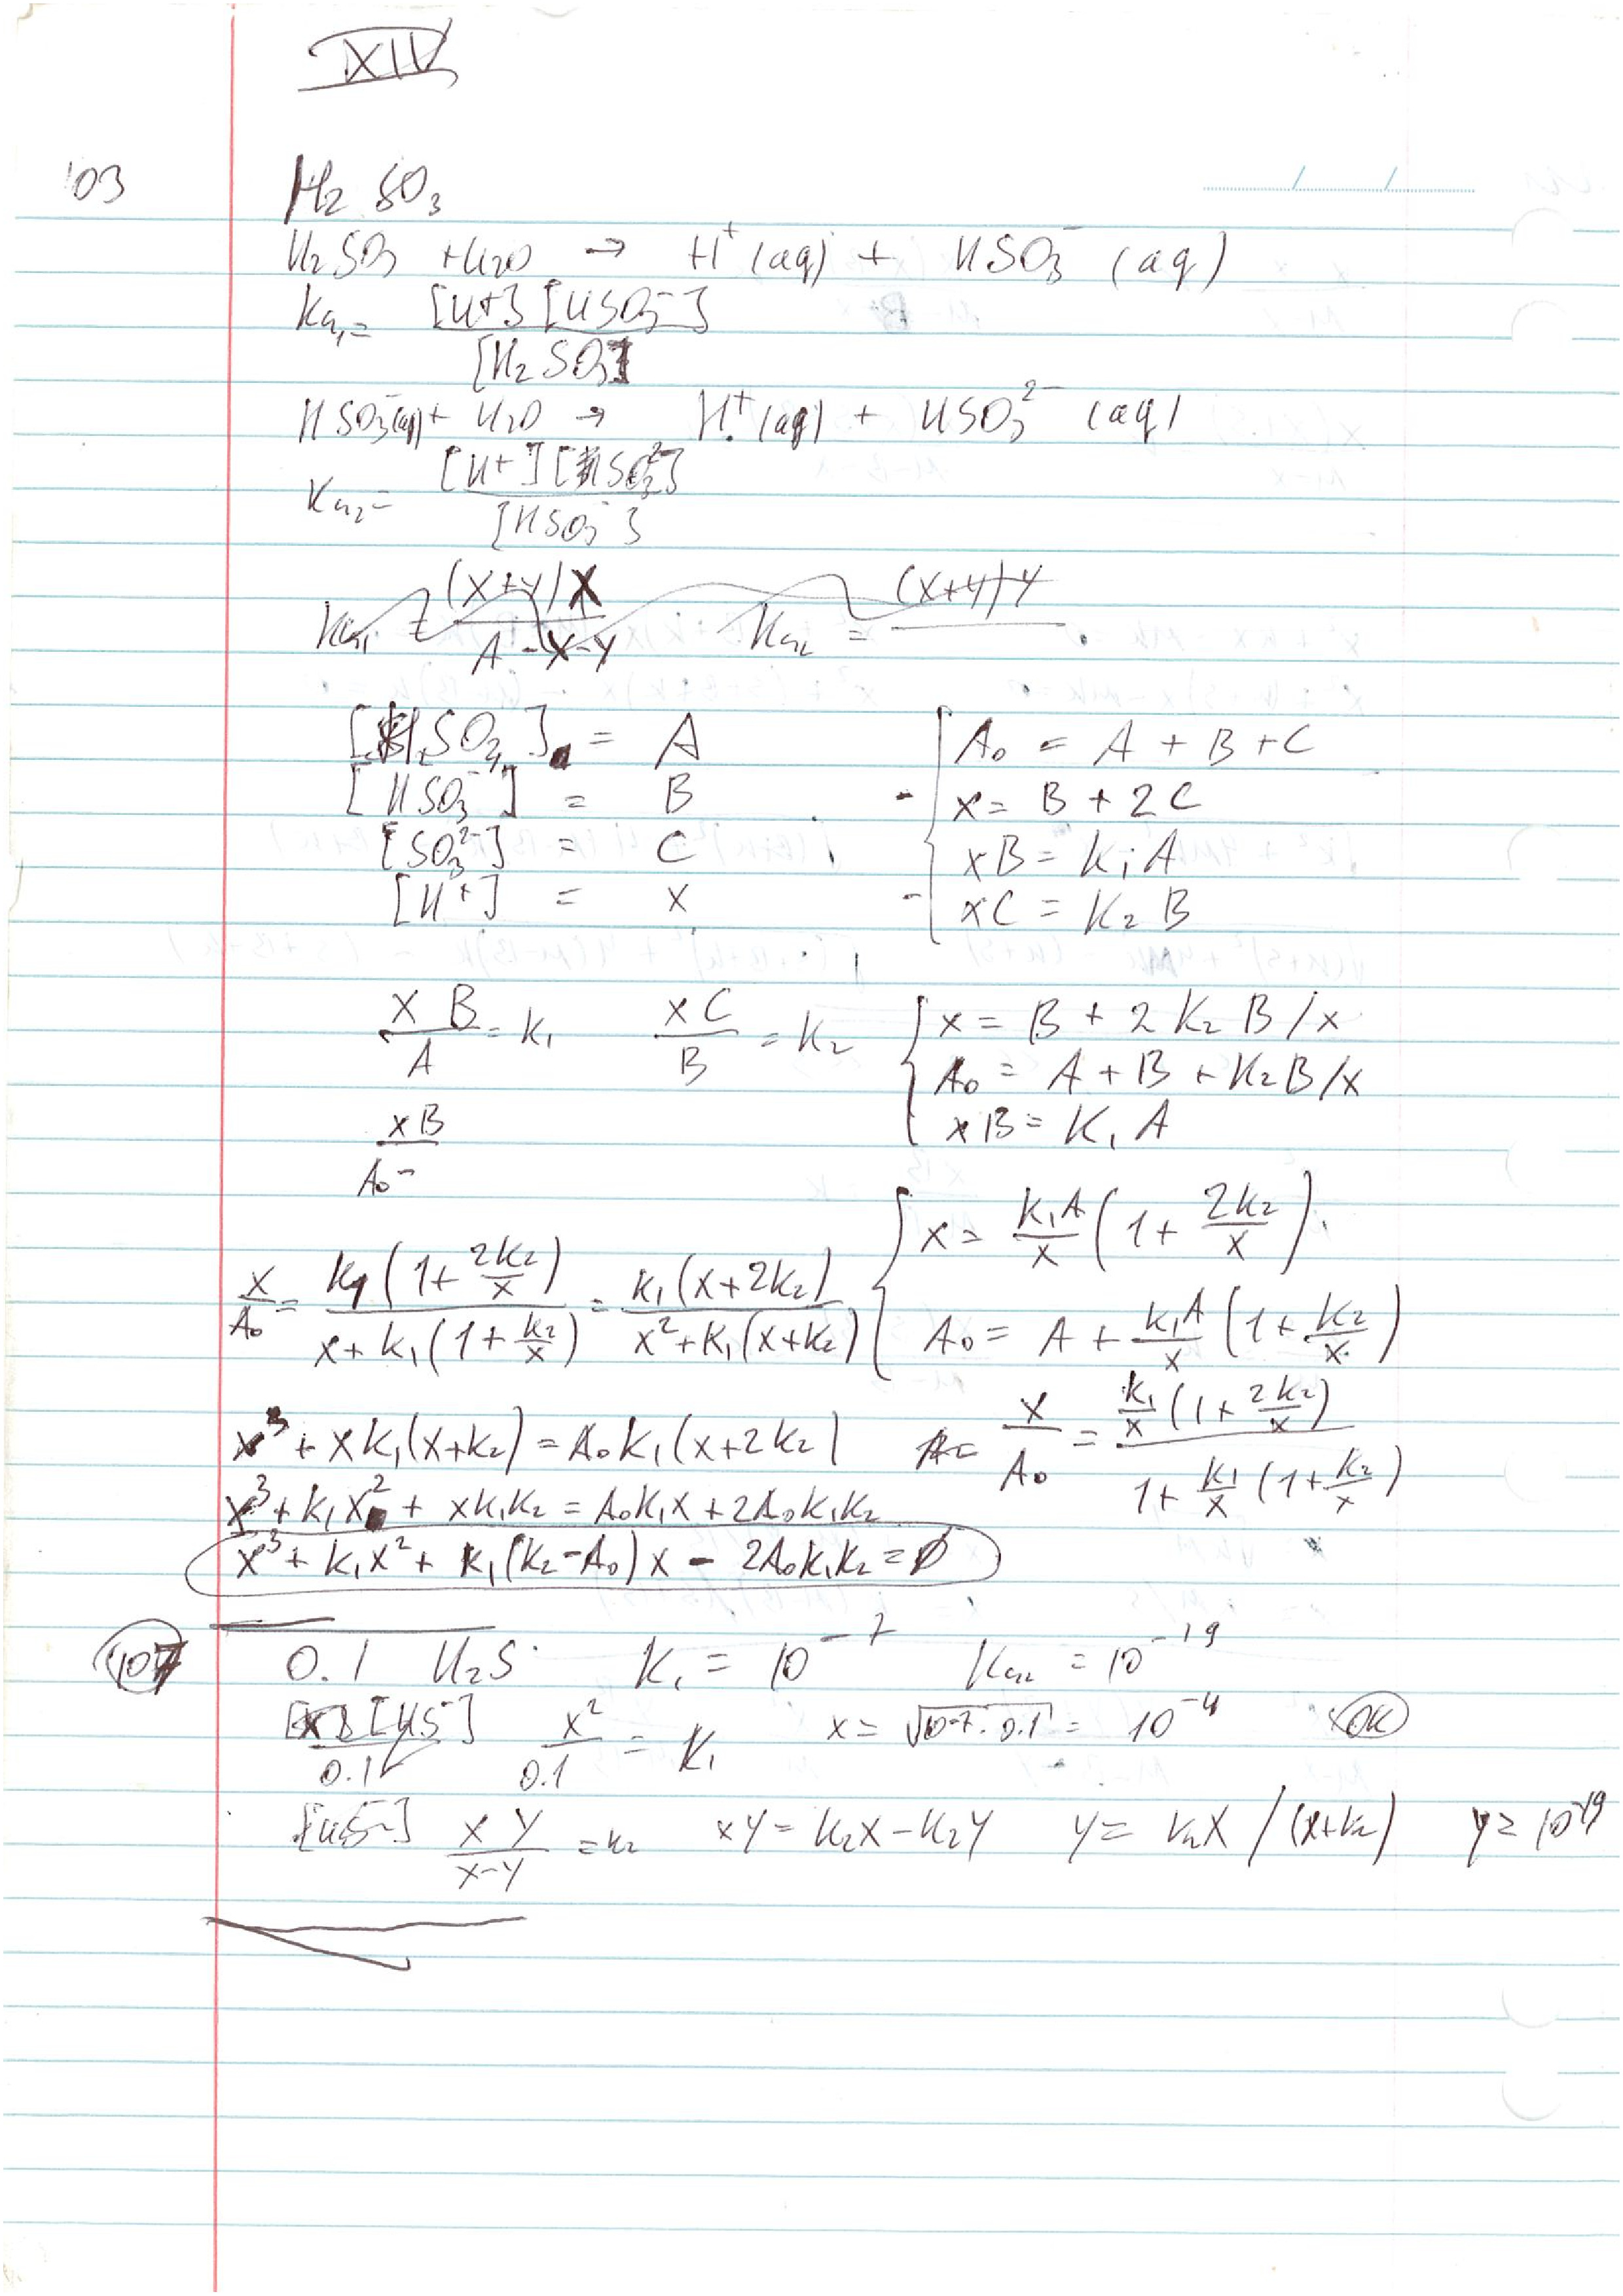 XIV
103 H₂SO₃
H₂SO₃ + H₂O → H⁺(aq) + HSO₃⁻ (aq)
Ka₁ = [H⁺][HSO₃⁻] / [H₂SO₃]
HSO₃⁻(aq) + H₂O → H⁺(aq) + HSO₃²⁻ (aq)
Ka₂ = [H⁺][SO₃²⁻] / [HSO₃⁻]
Ka₁ = (x+y)x / A-x-y Ka₂ = (x+y)y
[H₂SO₃] = A A₀ = A + B + C
[HSO₃⁻] = B x = B + 2C
[SO₃²⁻] = C xB = K₁A
[H⁺] = x xC = K₂B
xB/A = K₁ xC/B = K₂ x = B + 2K₂B/x
A₀ = A + B + K₂B/x
xB = K₁A
xB / A₀-
x = K₁A/x (1 + 2K₂/x)
x/A₀ = K₁(1 + 2K₂/x) / x + K₁(1 + K₂/x) = K₁(x+2K₂) / x² + K₁(x+K₂) A₀ = A + K₁A/x (1 + K₂/x)
x³ + xK₁(x+K₂) = A₀K₁(x+2K₂) A= x/A₀ = K₁/x (1 + 2K₂/x) / 1 + K₁/x (1 + K₂/x)
x³ + K₁x² + xK₁K₂ = A₀K₁x + 2A₀K₁K₂
x³ + K₁x² + K₁(K₂-A₀)x - 2A₀K₁K₂ = 0
107 0.1 H₂S K₁ = 10⁻⁷ Ka₂ = 10⁻¹⁹
[x][HS⁻] / 0.1 x²/0.1 = K₁ x = √10⁻⁷·0.1 = 10⁻⁴ OK
xy / x-y = K₂ xy = K₂x - K₂y y = K₂x / (x+K₂) y = 10⁻¹⁹